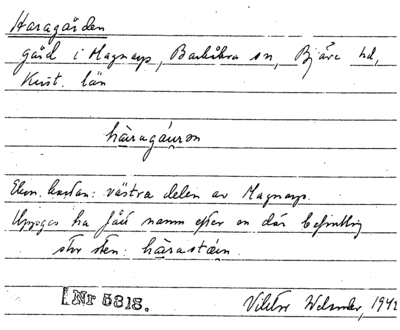 Haragården
gård i Magnarp, Barkåkra sn, Bjäre hd,
Krist. län
hàragáurən
Ekon. kartan: västra delen av Magnarp.
Uppges ha fått namn efter en där befintlig
stor sten: hàrastáin
Nr 5818.
Viktor Welander, 1942